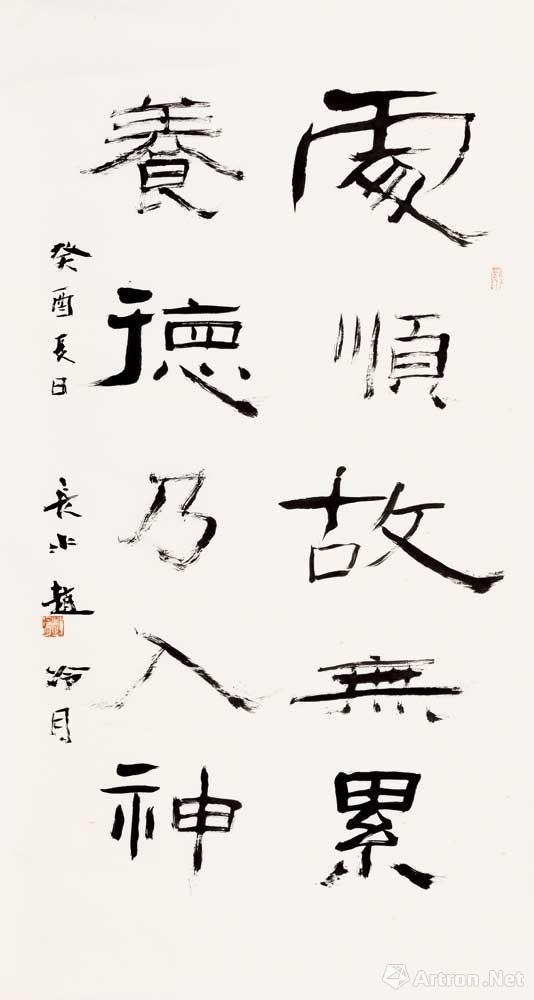 處順故無累
養德乃入神
癸酉長日
長水趙冷月
Artron.Net